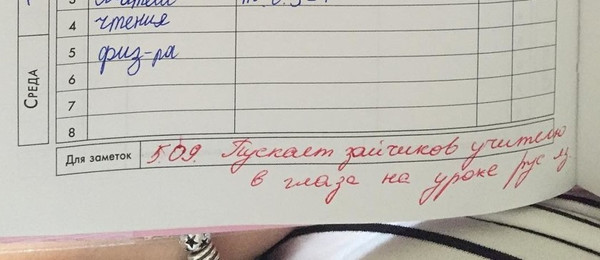 3
4 чтения
5 физ-ра
6
7
8
СРЕДА
Для заметок 5.09. Пускает зайчиков учителю
в глаза на уроке рус яз.